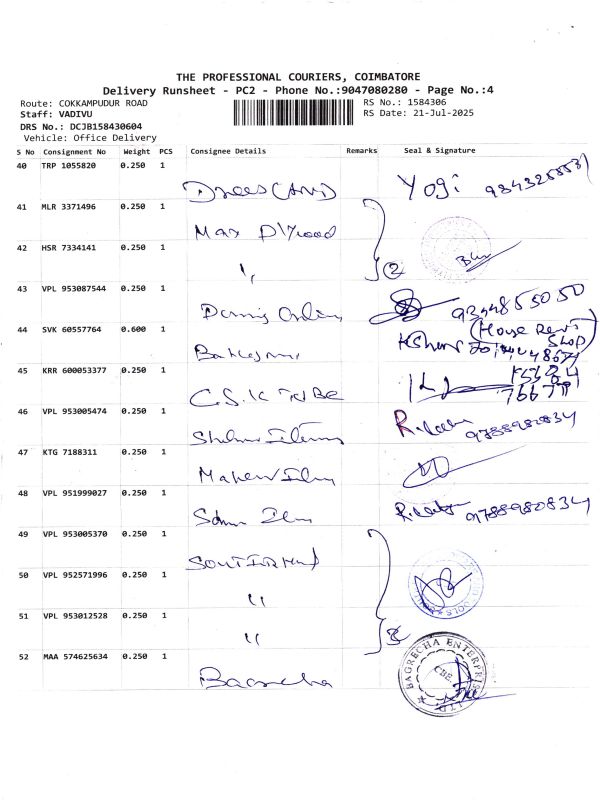 THE PROFESSIONAL COURIERS, COIMBATORE
Delivery Runsheet - PC2 - Phone No.:9047080280 - Page No.:4
Route: COKKAMPUDUR ROAD RS No.: 1584306
Staff: VADIVU RS Date: 21-Jul-2025
DRS No.: DCJB158430604
Vehicle: Office Delivery
S No Consignment No Weight PCS Consignee Details Remarks Seal & Signature
40 TRP 1055820 0.250 1
Yogi
41 MLR 3371496 0.250 1
Max
42 HSR 7334141 0.250 1
" 2
43 VPL 953087544 0.250 1
9344855050
44 SVK 60557764 0.600 1
(House Rent Shop)
45 KRR 600053377 0.250 1
C.S.K TUBE
46 VPL 953005474 0.250 1
9788980834
47 KTG 7188311 0.250 1
48 VPL 951999027 0.250 1
9788980834
49 VPL 953005370 0.250 1
50 VPL 952571996 0.250 1
"
51 VPL 953012528 0.250 1
"
52 MAA 574625634 0.250 1
Bagrecha
BAGRECHA ENTERPRISE LTD
CBE.